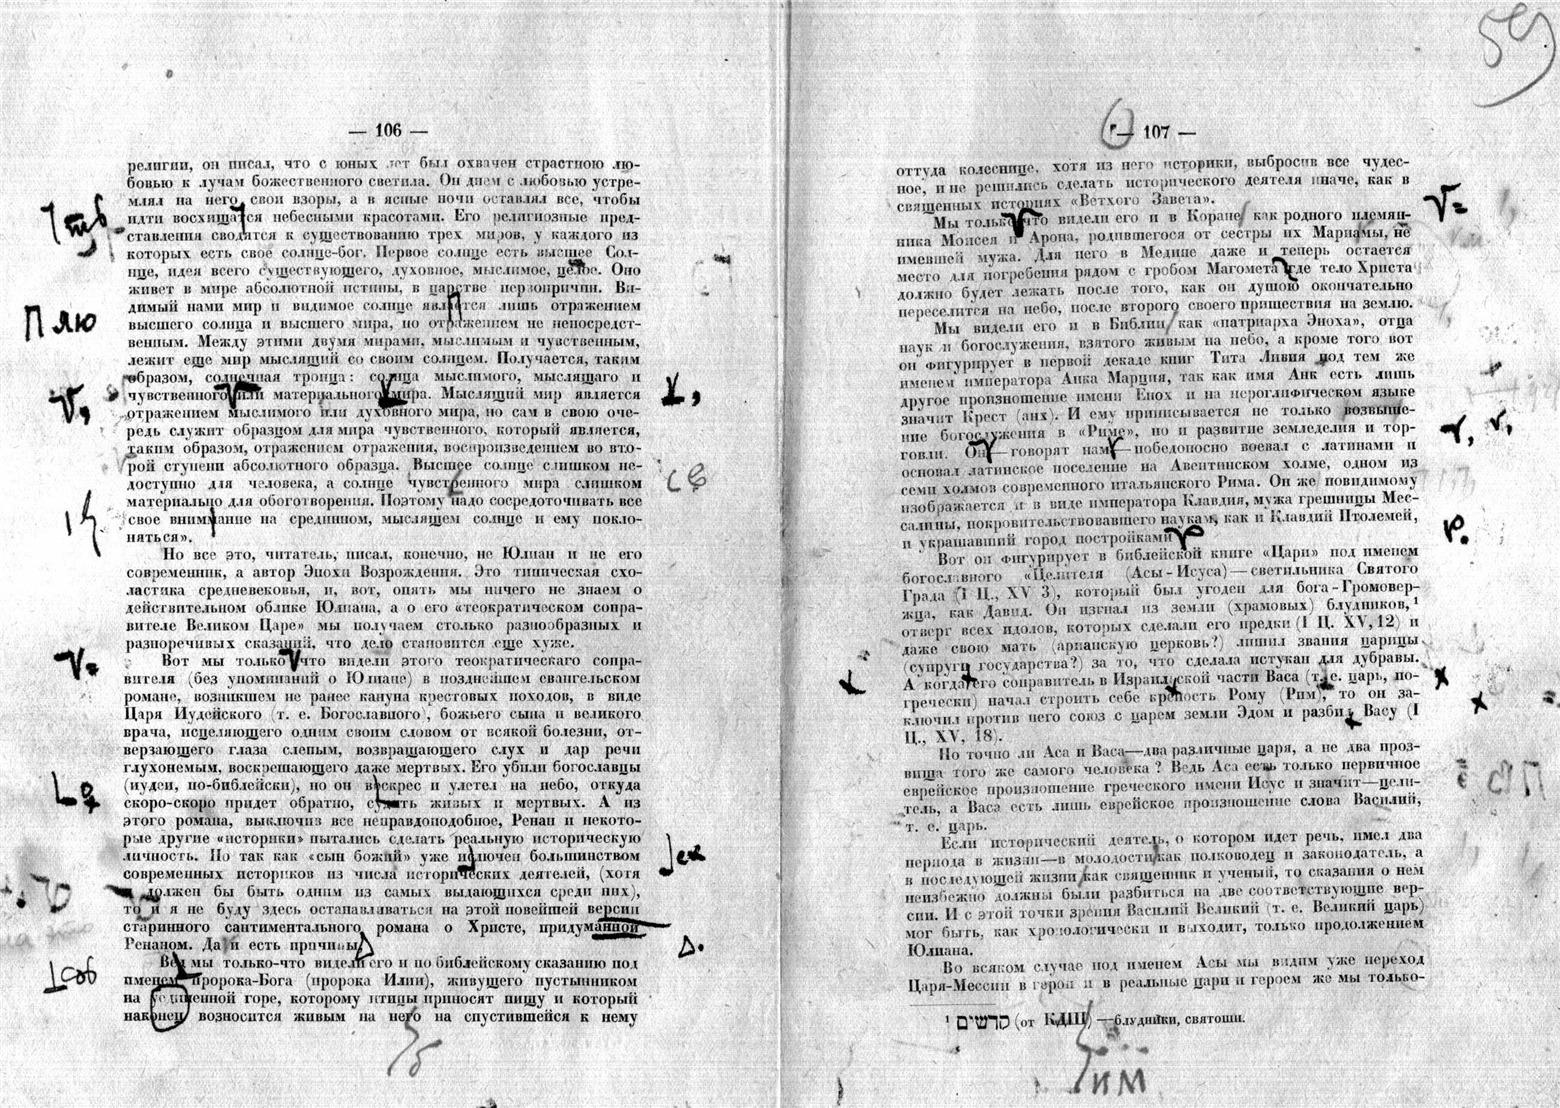 — 106 —
религии, он писал, что с юных лет был охвачен страстною лю-
бовью к лучам божественного светила. Он днем с любовью устре-
млял на него свои взоры, а в ясные ночи оставлял все, чтобы
идти восхищатся небесными красотами. Его религиозные пред-
ставления сводятся к существованию трех миров, у каждого из
которых есть свое солнце-бог. Первое солнце есть высшее Сол-
нце, идея всего существующего, духовное, мыслимое, целое. Оно
живет в мире абсолютной истины, в царстве первопричин. Ви-
димый нами мир и видимое солнце является лишь отражением
высшего солнца и высшего мира, но отражением не непосредст-
венным. Между этими двумя мирами, мыслимым и чувственным,
лежит еще мир мыслящий со своим солнцем. Получается, таким
образом, солнечная троица: солнца мыслимого, мыслящаго и
чувственного или материального мира. Мыслящий мир является
отражением мыслимого или духовного мира, но сам в свою оче-
редь служит образцом для мира чувственного, который является,
таким образом, отражением отражения, воспроизведением во вто-
рой ступени абсолютного образца. Высшее солнце слишком не-
доступно для человека, а солнце чувственного мира слишком
материально для обоготворения. Поэтому надо сосредоточивать все
свое внимание на срединном, мыслящем солнце и ему покло-
няться».
Но все это, читатель, писал, конечно, не Юлиан и не его
современник, а автор Эпохи Возрождения. Это типическая схо-
ластика средневековья, и, вот, опять мы ничего не знаем о
действительном облике Юлиана, а о его «теократическом сопра-
вителе Великом Царе» мы получаем столько разнообразных и
разноречивых сказаний, что дело становится еще хуже.
Вот мы только что видели этого теократическаго сопра-
вителя (без упоминаний о Юлиане) в позднейшем евангельском
романе, возникшем не ранее кануна крестовых походов, в виде
Царя Иудейского (т. е. Богославного), божьего сына и великого
врача, исцеляющего одним своим словом от всякой болезни, от-
верзающего глаза слепым, возвращающего слух и дар речи
глухонемым, воскрешающего даже мертвых. Его убили богославцы
(иудеи, по-библейски), но он воскрес и улетел на небо, откуда
скоро-скоро придет обратно, судить живых и мертвых. А из
этого романа, выключив все неправдоподобное, Ренан и некото-
рые другие «историки» пытались сделать реальную историческую
личность. Но так как «сын божий» уже исключен большинством
современных историков из числа исторических деятелей, (хотя
должен бы быть одним из самых выдающихся среди них),
то и я не буду здесь останавливаться на этой новейшей версии
старинного сантиментального романа о Христе, придуманной
Ренаном. Да и есть причины
Вед мы только-что видели его и по библейскому сказанию под
именем пророка-Бога (пророка Илии), живущего пустынником
на уединенной горе, которому птицы приносят пищу и который
наконец возносится живым на него на спустившейся к нему
59
— 107 —
оттуда колеснице, хотя из него историки, выбросив все чудес-
ное, и не решились сделать исторического деятеля иначе, как в
священных историях «Ветхого Завета».
Мы только что видели его и в Коране как родного племян-
ника Моисея и Арона, родившегося от сестры их Мариамы, не
имевшей мужа. Для него в Медине даже и теперь остается
место для погребения рядом с гробом Магомета где тело Христа
должно будет лежать после того, как он душою окончательно
переселится на небо, после второго своего пришествия на землю.
Мы видели его и в Библии как «патриарха Эноха», отца
наук и богослужения, взятого живым на небо, а кроме того вот
он фигурирует в первой декаде книг Тита Ливия под тем же
именем императора Анка Марция, так как имя Анк есть лишь
другое произношение имени Енох и на иероглифическом языке
значит Крест (анх). И ему приписывается не только возвыше-
ние богослужения в «Риме», но и развитие земледелия и тор-
говли. Он—говорят нам—победоносно воевал с латинами и
основал латинское поселение на Авентинском холме, одном из
семи холмов современного итальянского Рима. Он же повидимому
изображается и в виде императора Клавдия, мужа грешницы Мес-
салины, покровительствовавшего наукам, как и Клавдий Птолемей,
и украшавший город постройками
Вот он фигурирует в библейской книге «Цари» под именем
богославного «Целителя (Асы-Исуса)—светильника Святого
Града (I Ц., XV 3), который был угоден для бога-Громовер-
жца, как Давид. Он изгнал из земли (храмовых) блудников,¹
отверг всех идолов, которых сделали его предки (I Ц. XV, 12) и
даже свою мать (арианскую церковь?) лишил звания царицы
(супруги государства?) за то, что сделала истукан для дубравы.
А когда его соправитель в Израильской части Васа (т. е. царь, по-
гречески) начал строить себе крепость Рому (Рим), то он за-
ключил против него союз с царем земли Эдом и разбил Васу (I
Ц., XV, 18).
Но точно ли Аса и Васа—два различные царя, а не два проз-
вища того же самого человека? Ведь Аса есть только первичное
еврейское произношение греческого имени Исус и значит—цели-
тель, а Васа есть лишь еврейское произношение слова Василий,
т. е. царь.
Если исторический деятель, о котором идет речь, имел два
периода в жизни—в молодости как полководец и законодатель, а
в последующей жизни как священник и ученый, то сказания о нем
неизбежно должны были разбиться на две соответствующие вер-
сии. И с этой точки зрения Василий Великий (т. е. Великий царь)
мог быть, как хронологически и выходит, только продолжением
Юлиана.
Во всяком случае под именем Асы мы видим уже переход
Царя-Мессии в герои и в реальные цари и героем же мы только-
¹ קדשים (от КДШ)—блудники, святоши.
им